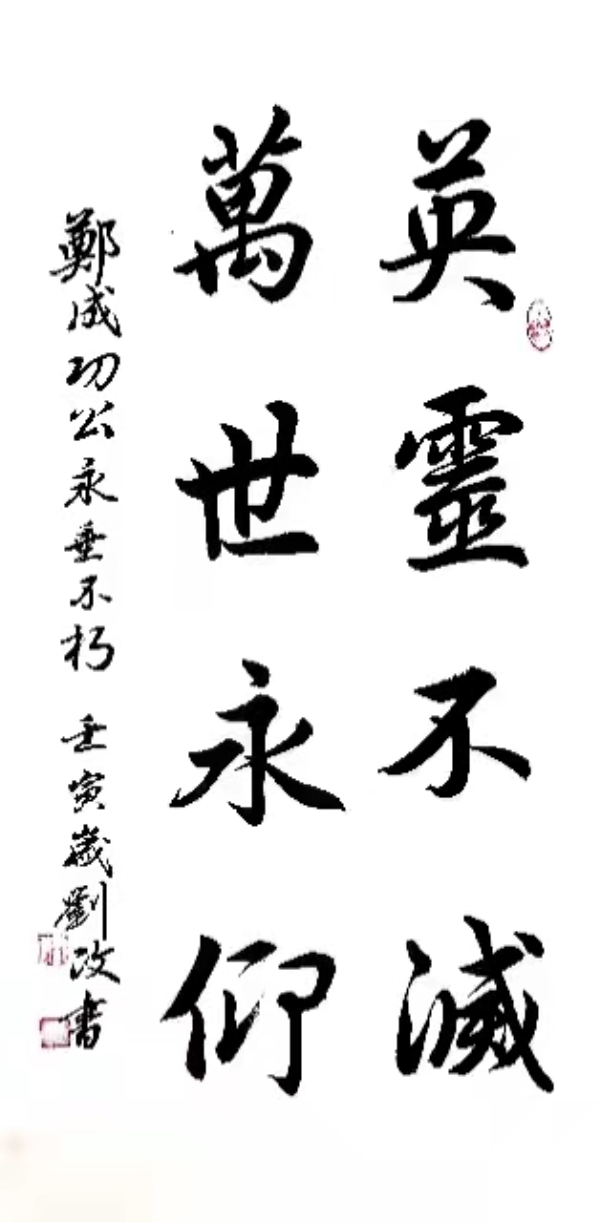 英靈不滅
萬世永仰
鄭成功公永垂不朽 壬寅歲劉改書